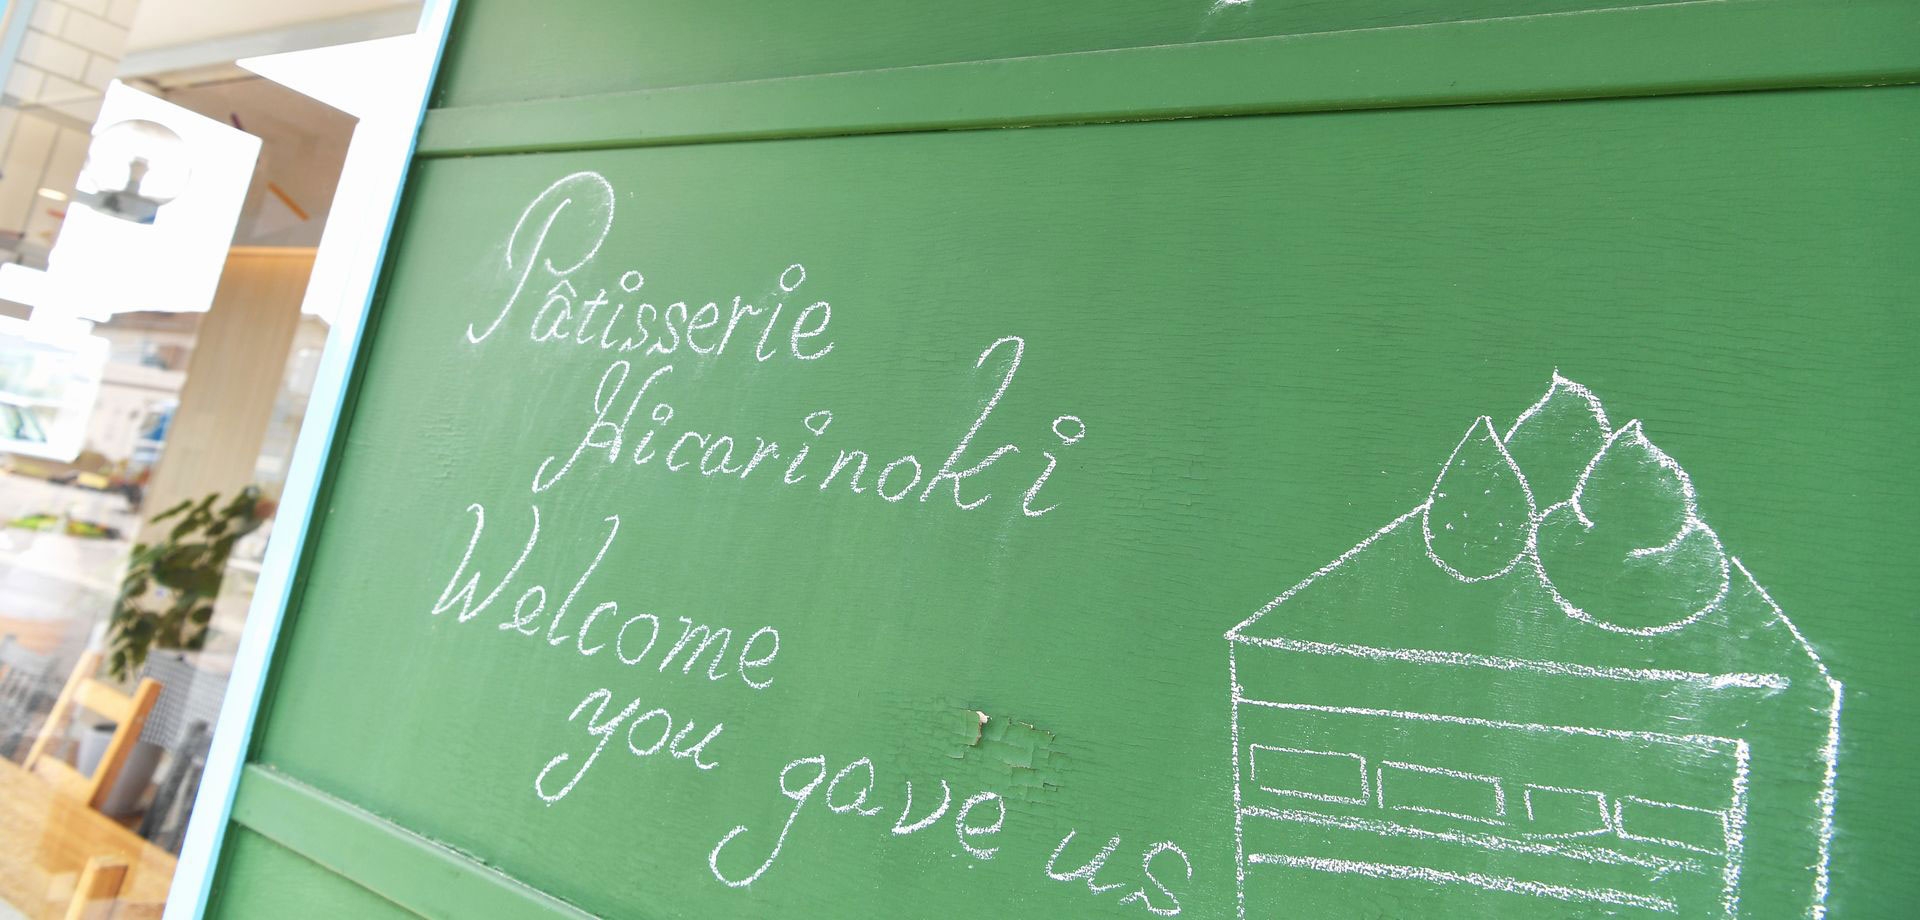 Pâtisserie
Hicarinoki
Welcome
you gave us